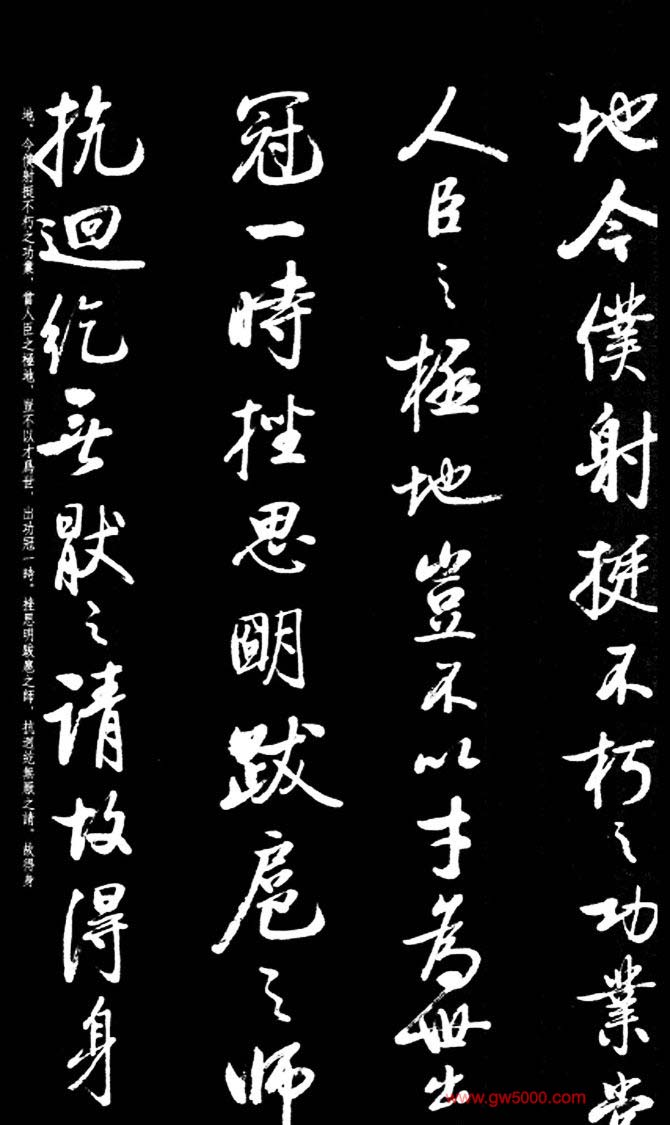 地今僕射挺不朽之功業當
人臣之極地豈不以才為世出
冠一時挫思明跋扈之師
抗迴紇無猒之請故得身
地、今僕射挺不朽之功業，當人臣之極地，豈不以才爲世，出功冠一時。挫思明跋扈之師，抗迴紇無厭之請。故得身
www.gw5000.com